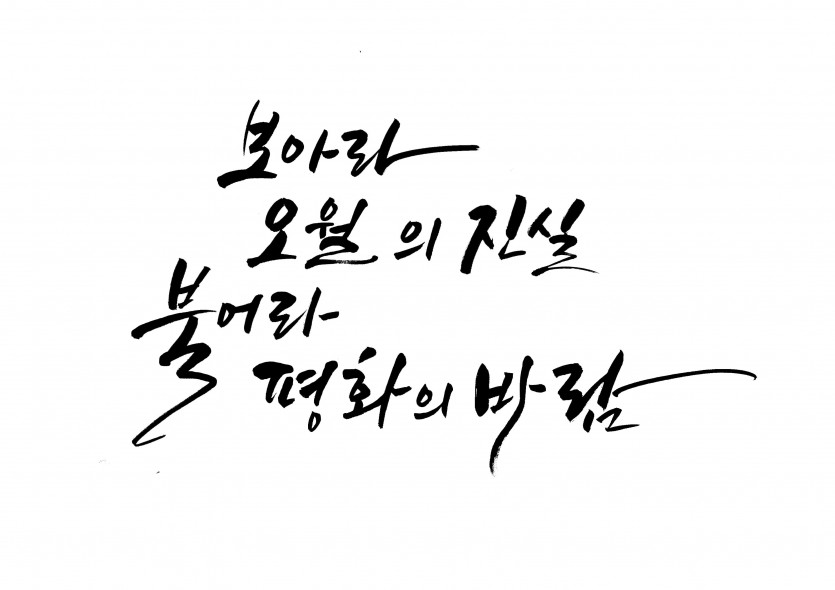 보아라
오월의 진실
불어라
평화의 바람